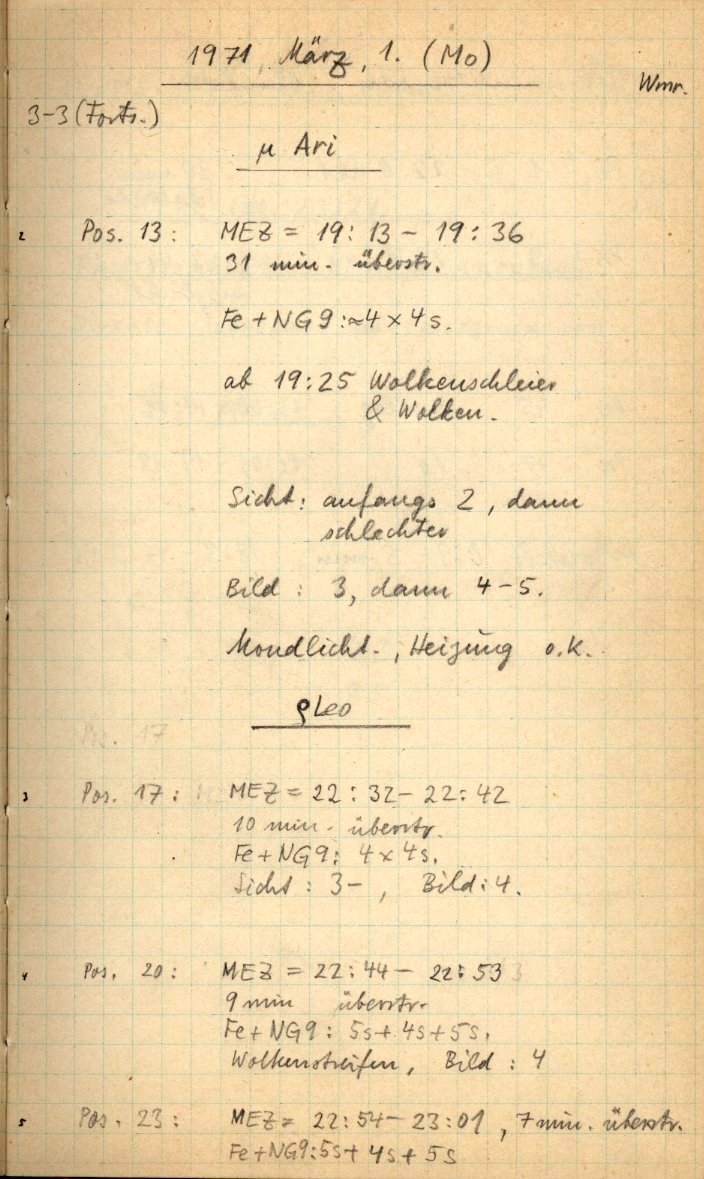 1971 März, 1. (Mo)
Wmr.
3-3 (Forts.)
μ Ari
2 Pos. 13: MEZ = 19:13 - 19:36
31 min. überstr.
Fe+NG9:≈4×4s.
ab 19:25 Wolkenschleier
& Wolken.
Sicht: anfangs 2, dann
schlechter
Bild: 3, dann 4-5.
Mondlicht., Heizung o.k.
ρ Leo
Pos. 17
3 Pos. 17: MEZ = 22:32 - 22:42
10 min. überstr.
Fe+NG9: 4×4s.
Sicht: 3-, Bild: 4.
4 Pos. 20: MEZ = 22:44 - 22:53
9 min überstr.
Fe+NG9: 5s+4s+5s.
Wolkenstreifen, Bild: 4
5 Pos. 23: MEZ = 22:54 - 23:01, 7 min. überstr.
Fe+NG9: 5s+4s+5s